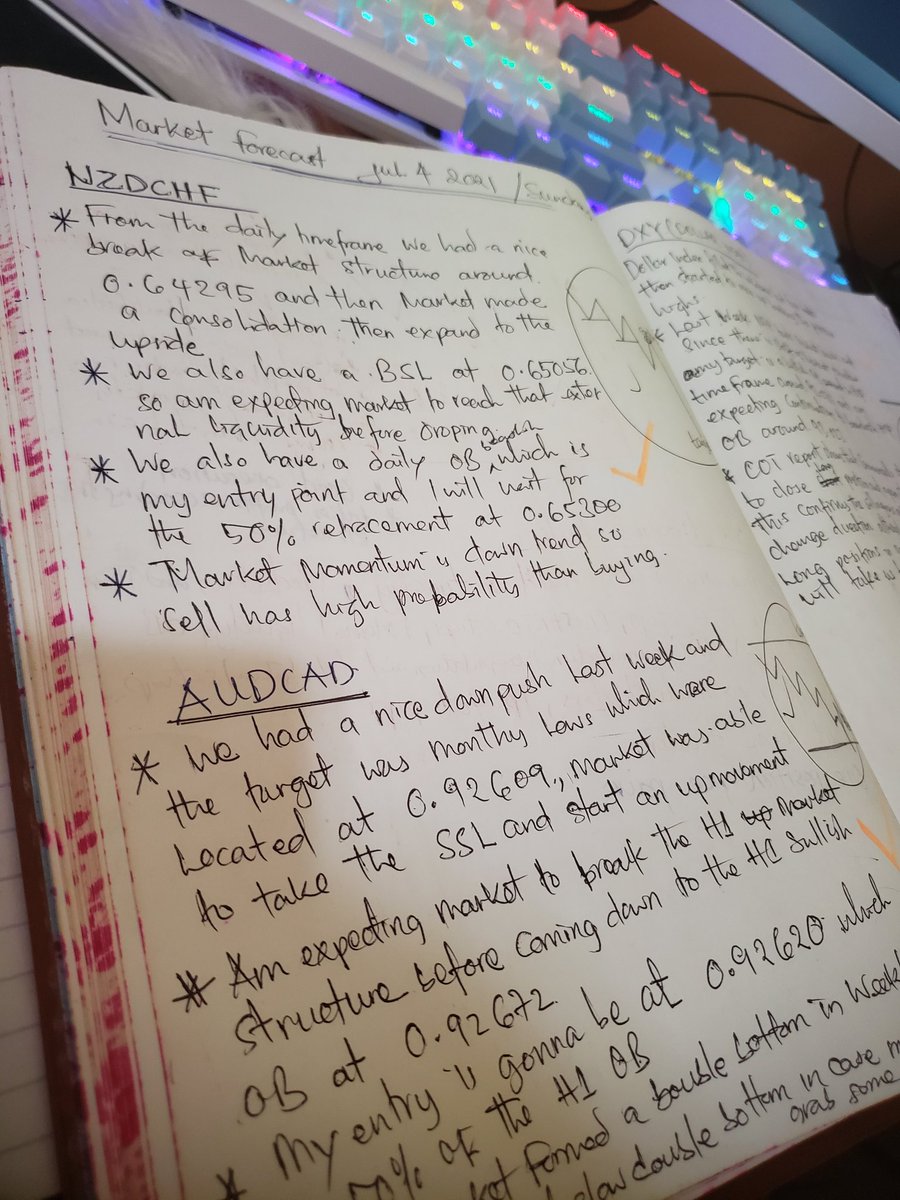 Market forecast Jul 4 2021 / Sunday
NZDCHF
* From the daily timeframe we had a nice
break of Market structure around
0.64295 and then Market made
a consolidation. then expand to the
upside
* We also have a BSL at 0.65056.
so am expecting market to reach that exter
nal liquidity before droping
* We also have a daily OB bearish which is
my entry point and I will wait for
the 50% retracement at 0.65200
* Market Momentum is down trend so
sell has high probability than buying.
AUDCAD
* We had a nice down push Last week and
the target was monthy Lows which were
Located at 0.92609,, market was able
to take the SSL and start an up movment
* Am expecting market to break the H1 up market
structure before coming down to the H1 bullish
OB at 0.92672
* My entry is gonna be at 0.92620 which
50% of the H1 OB
* formed a double bottom in Week
low double bottom in case m
grab some
DXY
Dollar Index
then started
highs
* Last
Since
my target
timeframe
expecting
OB around
* COT report
to close long
this confirms
change direction
Long positions
will take